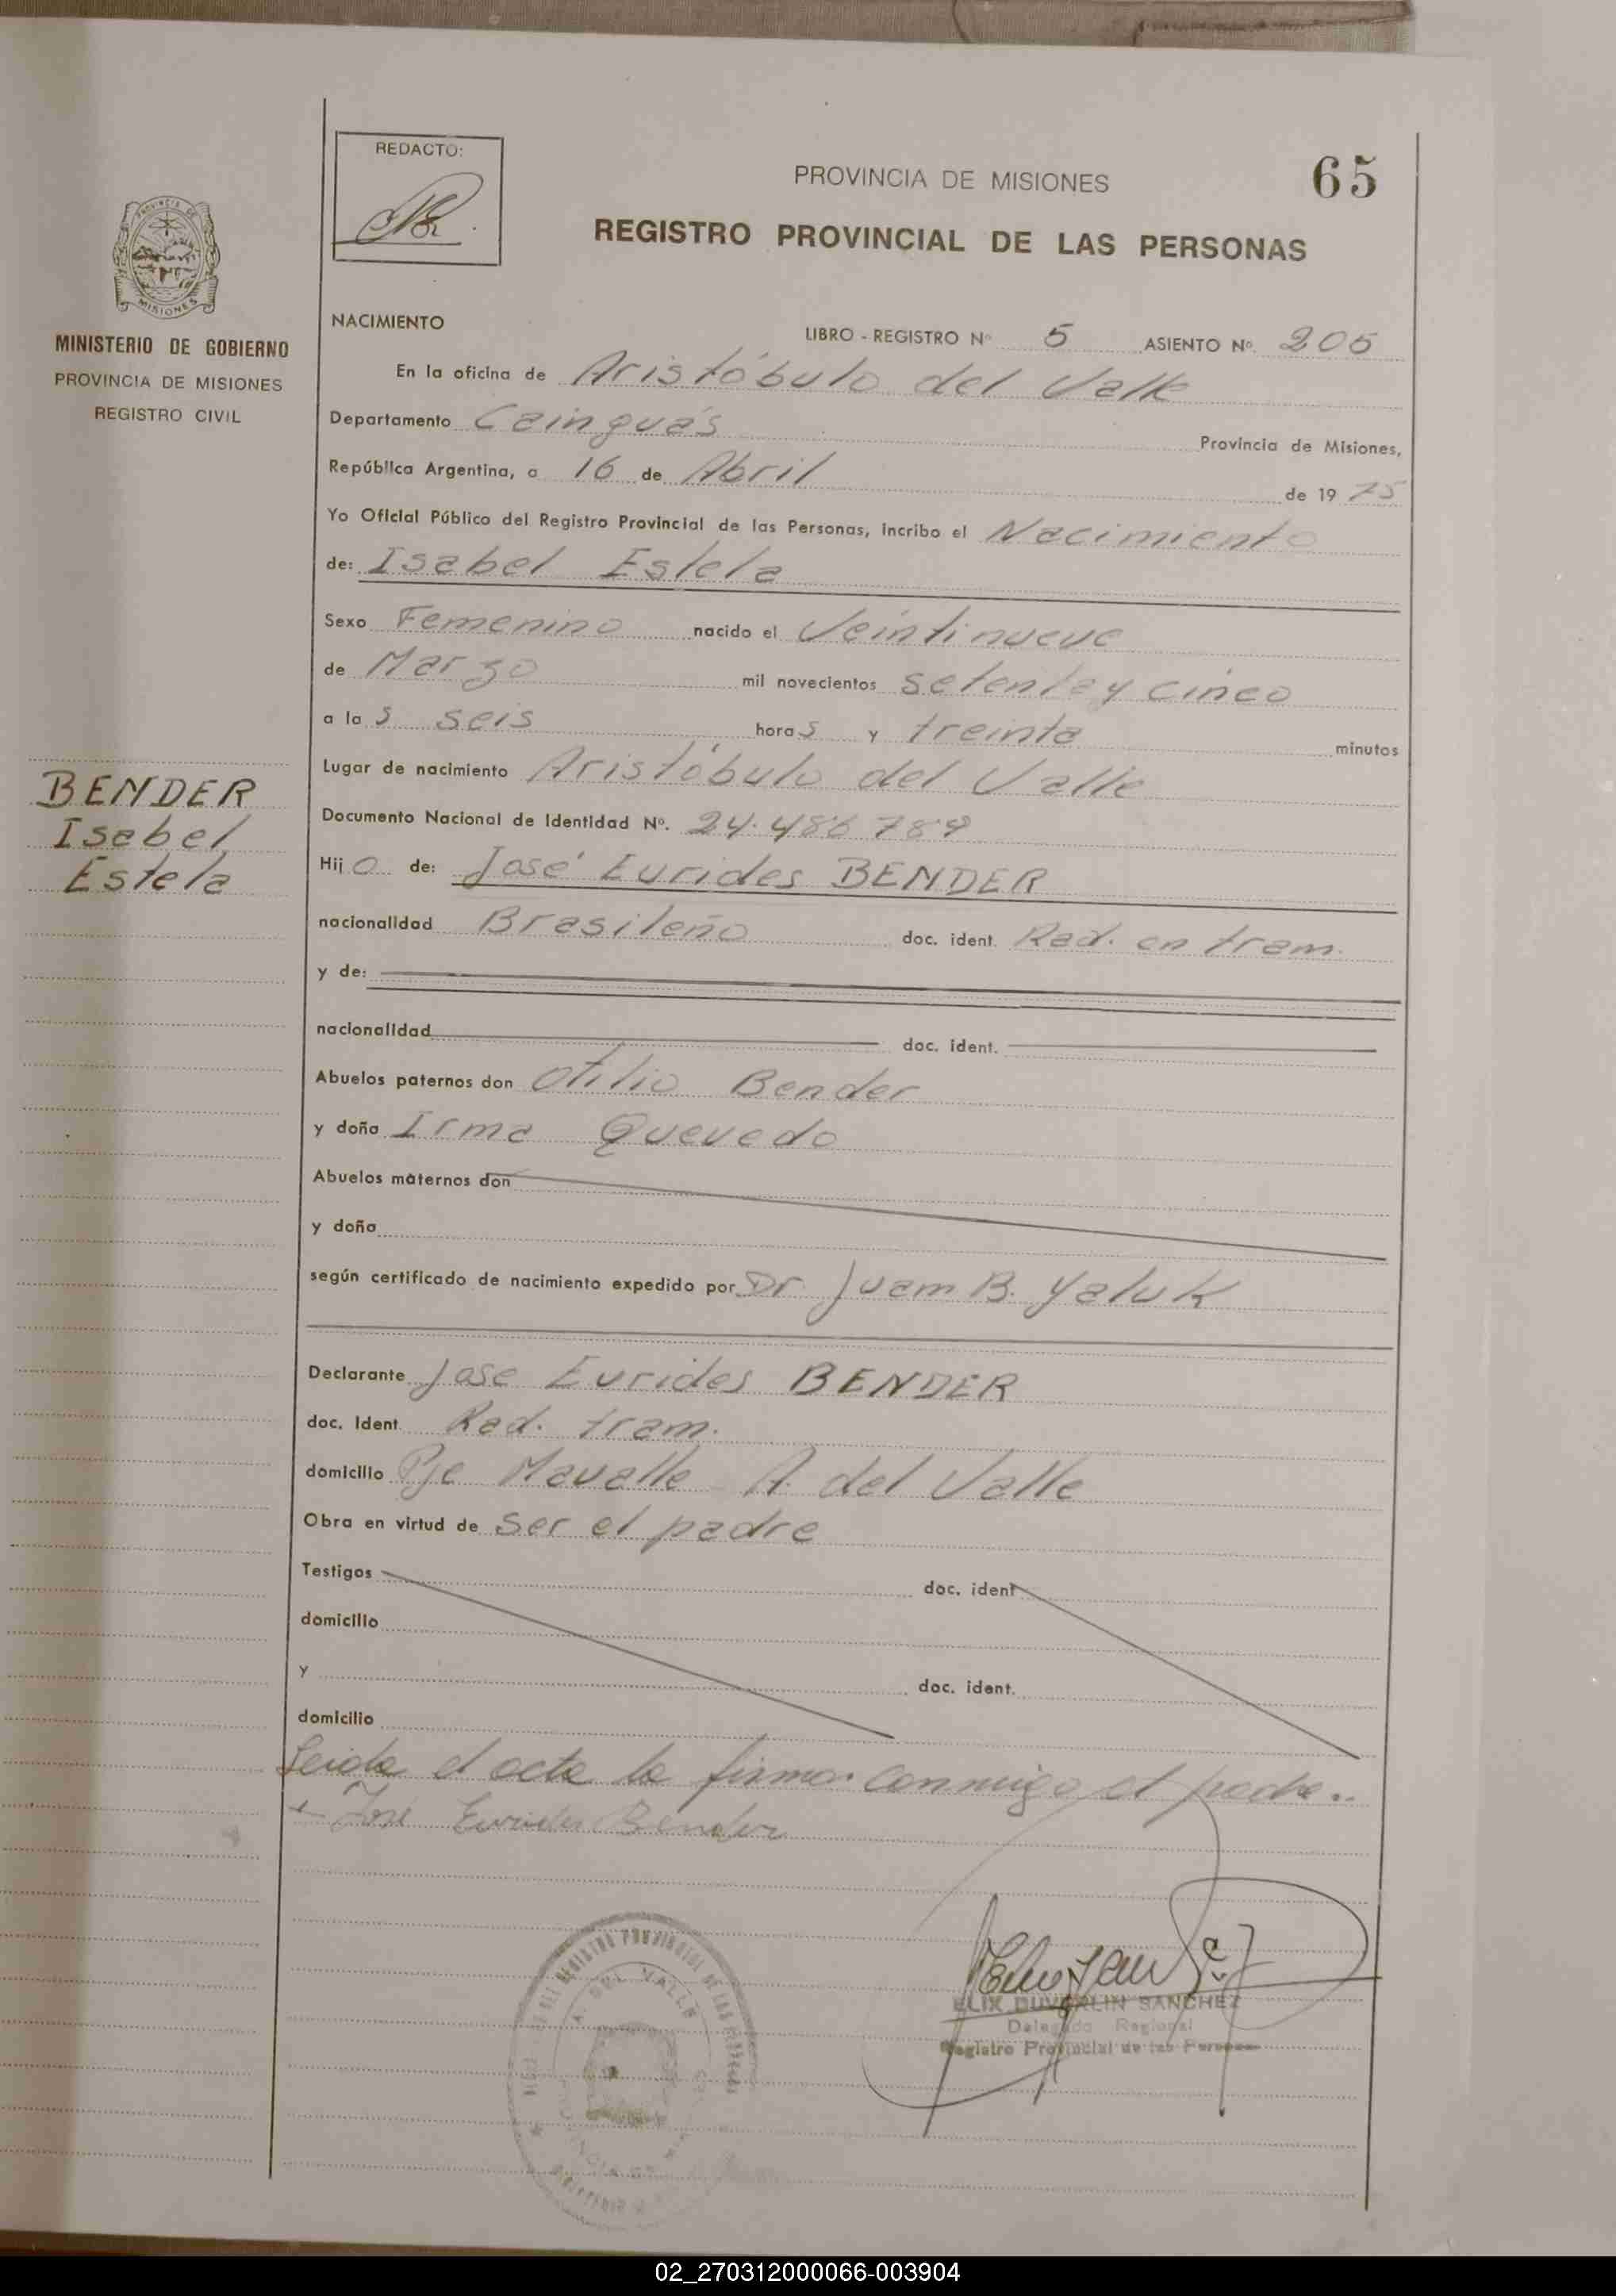 65
REDACTO:
PROVINCIA DE MISIONES
REGISTRO PROVINCIAL DE LAS PERSONAS
MISIONES
MINISTERIO DE GOBIERNO
PROVINCIA DE MISIONES
REGISTRO CIVIL
BENDER
Isabel
Estela
NACIMIENTO LIBRO - REGISTRO Nº 5 ASIENTO Nº. 205
En la oficina de Aristóbulo del Valle
Departamento Cainguás Provincia de Misiones,
República Argentina, a 16 de Abril de 19 75
Yo Oficial Público del Registro Provincial de las Personas, incribo el Nacimiento
de: Isabel Estela
Sexo Femenino nacido el Veintinueve
de Marzo mil novecientos setenta y cinco
a la s seis hora s y treinta minutos
Lugar de nacimiento Aristóbulo del Valle
Documento Nacional de Identidad Nº. 24.486.789
Hij a de: José Eurides BENDER
nacionalidad Brasileño doc. ident. Rad. en tram.
y de:
nacionalidad doc. ident.
Abuelos paternos don Otilio Bender
y doña Irma Quevedo
Abuelos maternos don
y doña
según certificado de nacimiento expedido por Dr. Juam B. Yaluk
Declarante Jose Eurides BENDER
doc. Ident. Rad. tram.
domicilio Pje Mavalle A. del Valle
Obra en virtud de ser el padre
Testigos doc. ident
domicilio
y doc. ident.
domicilio
Leida el acta la firma conmigo el padre..
José Eurides Bender
REGISTRO PROVINCIAL DE LAS PERSONAS
A. DEL VALLE
ELIX DUVERLIN SANCHEZ
Delegado Regional
Registro Provincial de las Personas
02_270312000066-003904